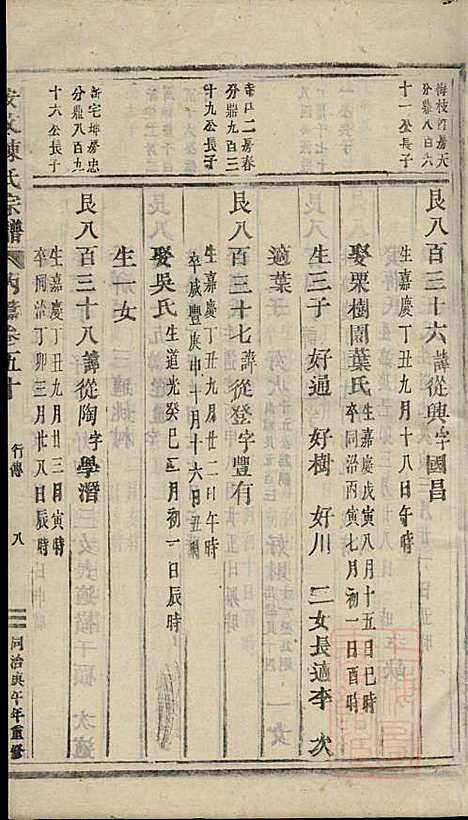 梅枝門房大
分鼎八百六
十一公長子
良八百三十六諱從興字國昌
生嘉慶丁丑九月十八日午時
娶栗樹園葉氏生嘉慶戊寅八月十五日巳時
卒同治丙寅七月初一日酉時
生三子 好通 好樹 好川 二女長適李 次
適葉子
分鼎九百三
十九公長子
良八百三十七諱從登字豐有
生嘉慶丁丑九月廿二日午時
卒咸豐庚申十月十六日丑時
娶吳氏生道光癸巳二月初一日辰時
生一女
新宅坤房忠
分鼎八百九
十六公長子
良八百三十八諱從陶字學潛
生嘉慶丁丑九月廿三日寅時
卒同治丁卯三月廿八日辰時
陳氏宗譜 內舊卷五十 行傳 八 同治庚午年重修